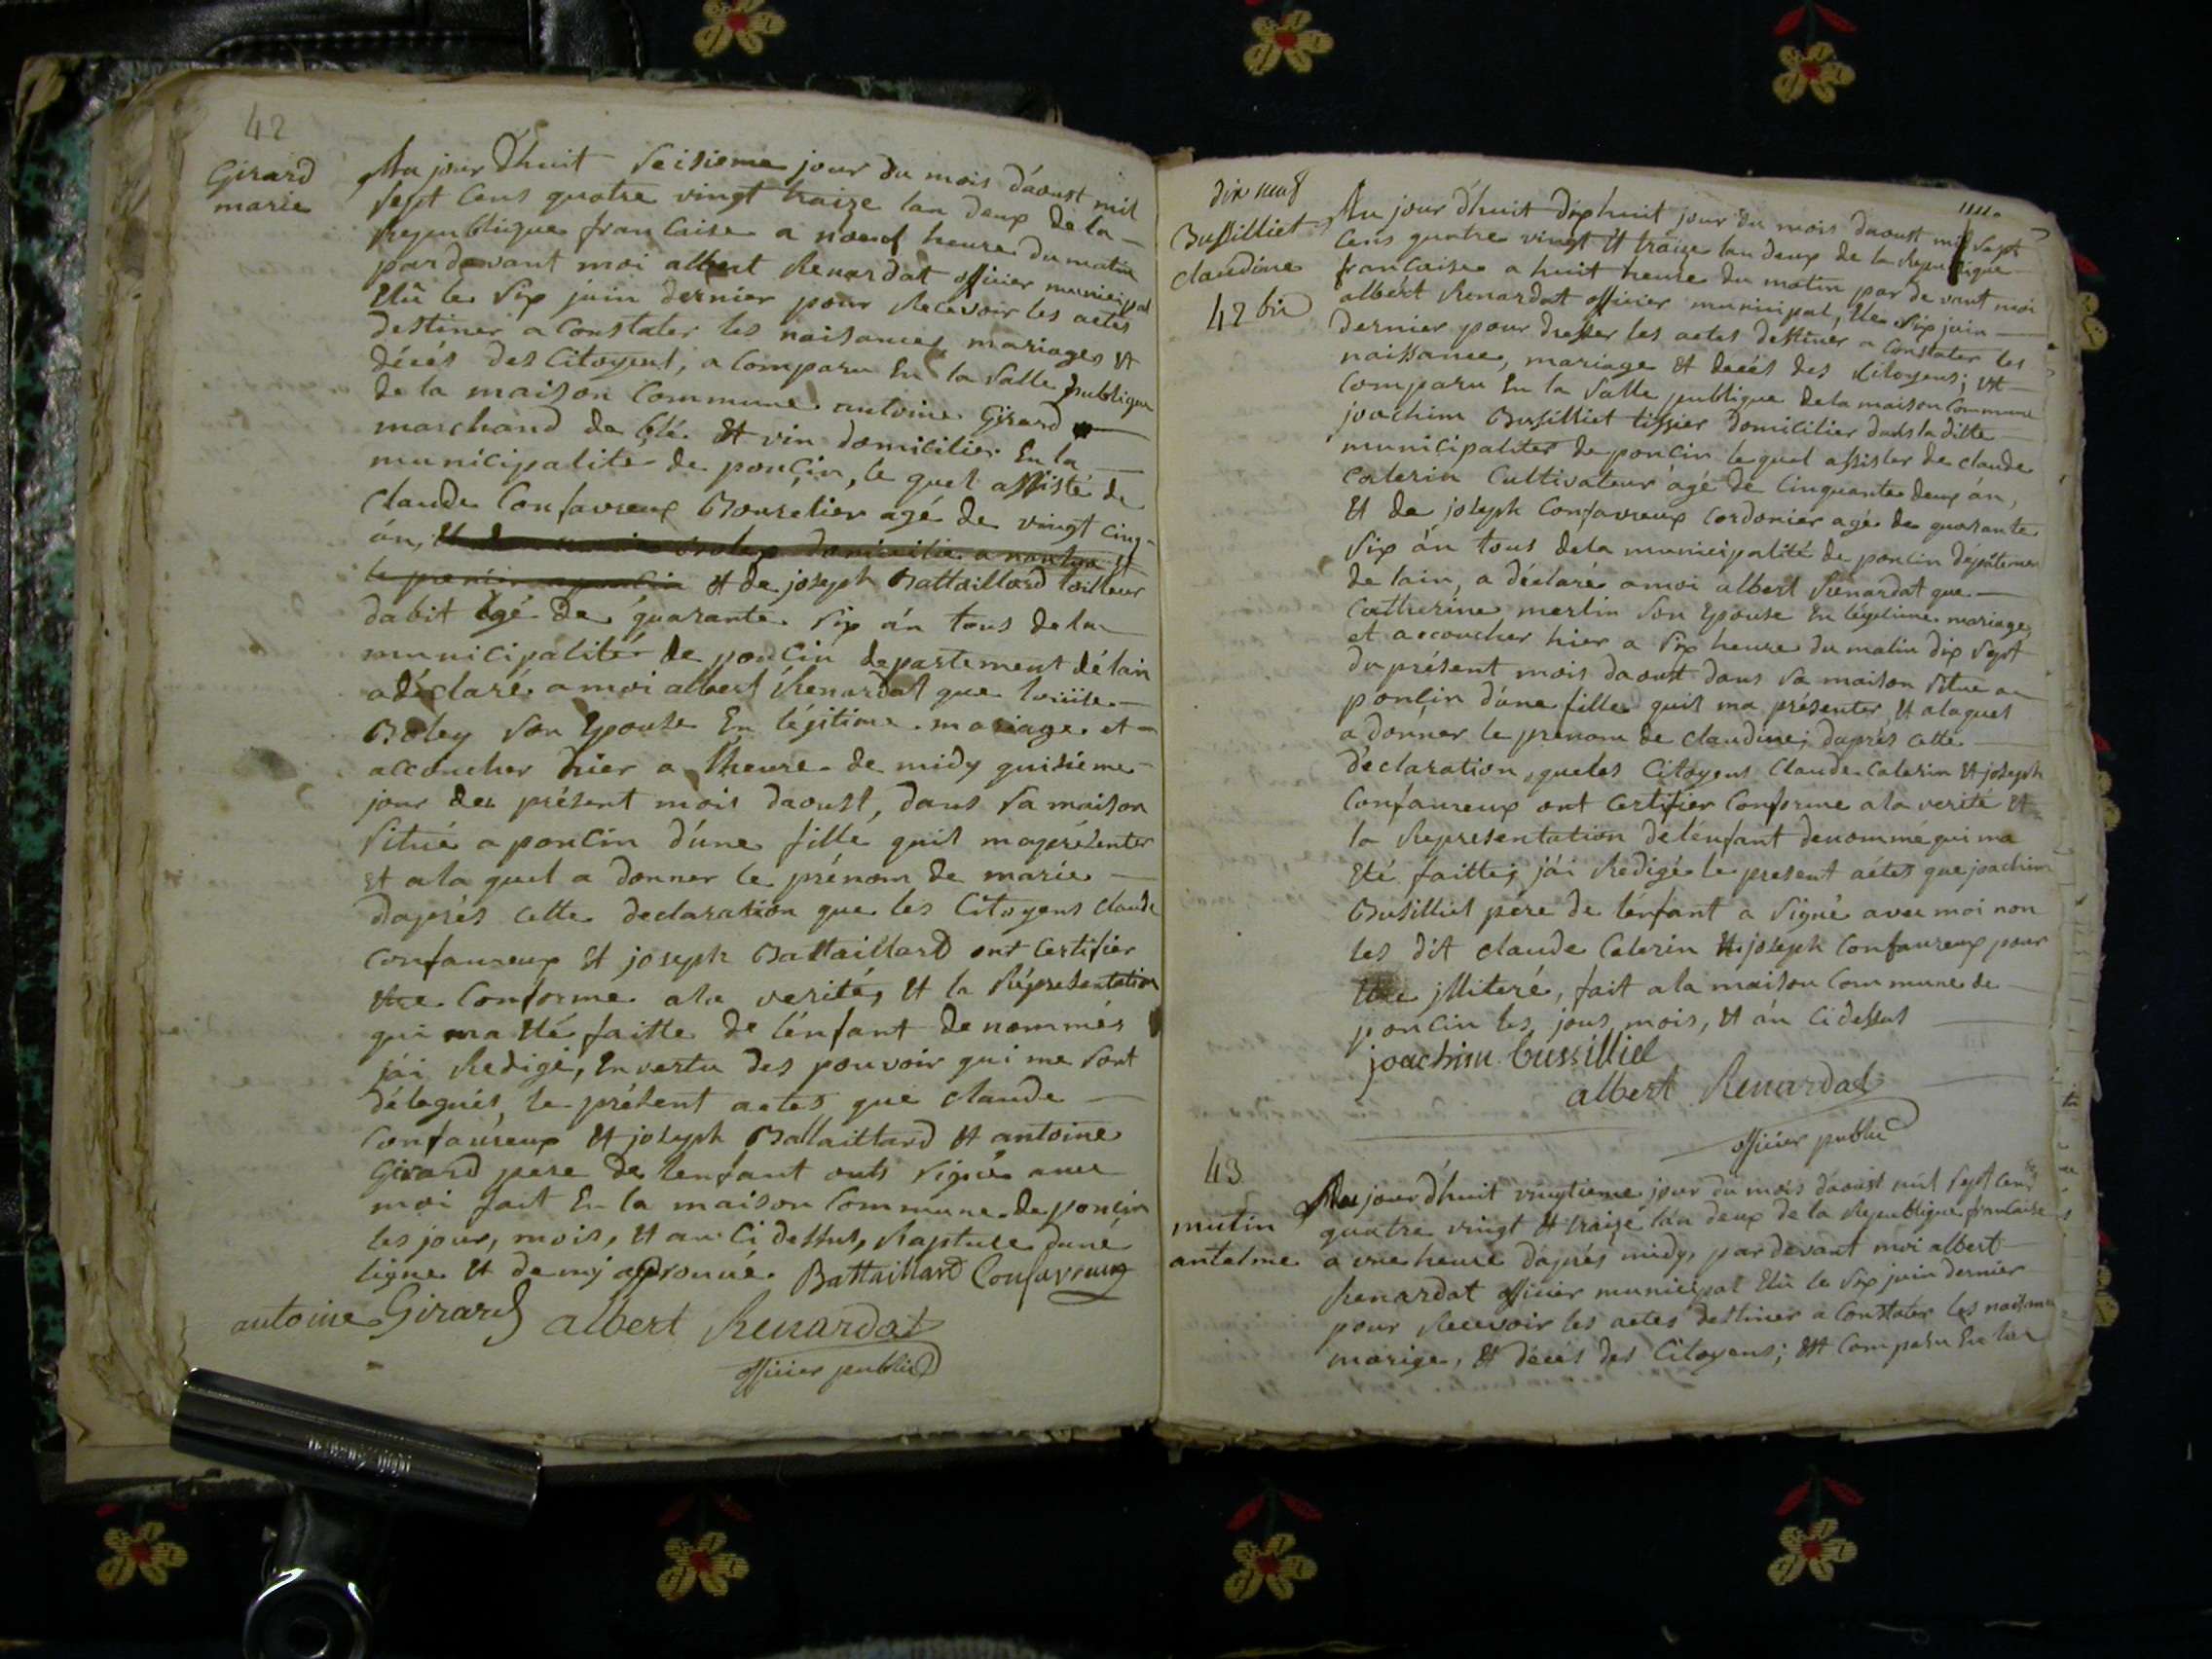 42
Girard
marie
Au jour Dhuit Seisieme jour du mois d'áoust mil
sept Cens quatre vingt traize lan deux de la
Republique francaise a noeuf heure du matin
pardevant moi albert Renardat officier municipal
Elû le Six juin dernier pour Recevoir les actes
destiner a Constater les naisances mariages Et
décés des Citoyens, a Comparu En la Salle publique
de la maison Commune antoine Girard
marchand de blé Et vin domicilier En la
municipalité de poncin, le quel assisté de
Claude Confavreux Bourelier agé de vingt cinq
án, Et
le premier a poncin Et de joseph Battaillard tailleur
dabit agé de quarante Six án tous de la
municipalité de poncin departement de lain
a déclaré a moi albert Renardat que louiise
Boley Son Epouse En légitime mariage et
accoucher hier a lheure de midy quisieme
jour du présent mois daoust, dans Sa maison
Situé a poncin d'une fille quil ma présenter
et a la quel a donner le prénom de marie
daprés cette declaration que les Citoyens claude
Confaureux Et joseph Battaillard ont Certifier
Etre Conforme a la verité, Et la Répresentation
qui ma Eté faitte de lénfant denommés
jái Redigé, En vertu des pouvoir qui me Sont
délegués, le présent actes que claude
Confaureux Et joseph Battaillard Et antoine
Girard pere de lenfant onts Signé avec
moi fait En la maison Commune de poncin
les jour, mois, Et an Ci dessus, Rapture dune
ligne Et demy aprouvé. Battaillard Confavreux
antoine Girard albert Renardat
officier public
dix neuf
Bussilliet
claudine
42 bis
Au jour d'huit dix huit jour du mois daoust mil Sept
Cens quatre vingt Et traize lan deux de la Republique
francaise a huit heure du matin par de vant moi
albért Renardat officier municipal, Elu Six juin
dernier pour dresser les actes destiner a Constater les
naissance, mariage Et decés des Citoyens; Et
Comparu En la Salle publique de la maison Commune
joachim Busilliet tissier domicilier dans la ditte
municipaliter de poncin le quel assister de claude
Caterin Cultivateur agé de Cinquante deux án,
Et de joseph Confavreux Cordonier agé de quarante
Six án tous de la municipalité de poncin départemen
de lain, a déclaré a moi albert Renardat que
Catherine merlin Son Epouse En légitime mariage
et accoucher hier a Six heure du matin dix Sept
du présent mois daoust dans Sa maison Situe a
poncin d'une fille quil ma présenter, Et a laquel
a donner le prenom de claudine; daprés cette
déclaration, que les Citoyens Claude Caterin Et joseph
Confaureux ont Certifier Conforme a la verité Et
la Representation de lénfant denommé qui ma
Eté faitte; jái Redigé le present actes que joachim
Busilliet pére de lénfant a Signé avec moi non
les dit claude Caterin Et joseph Confaureux pour
Etre jlliteré, fait a la maison Commune de
poncin les jours mois, Et án Ci dessus
joachim bussilliet
albert Renardat
officier public
43
mutin
antelme
Au jour d'huit vingtieme jour du mois daoust mil Sept Cens
quatre vingt Et traize lán deux de la Republique francaise
a une heure d'aprés midy, par devant moi albert
Renardat officier municipal Elu le Six juin dernier
pour Recevoir les actes destiner a Constater les naisance
marige, Et décés des Citoyens; Et Comparu En la